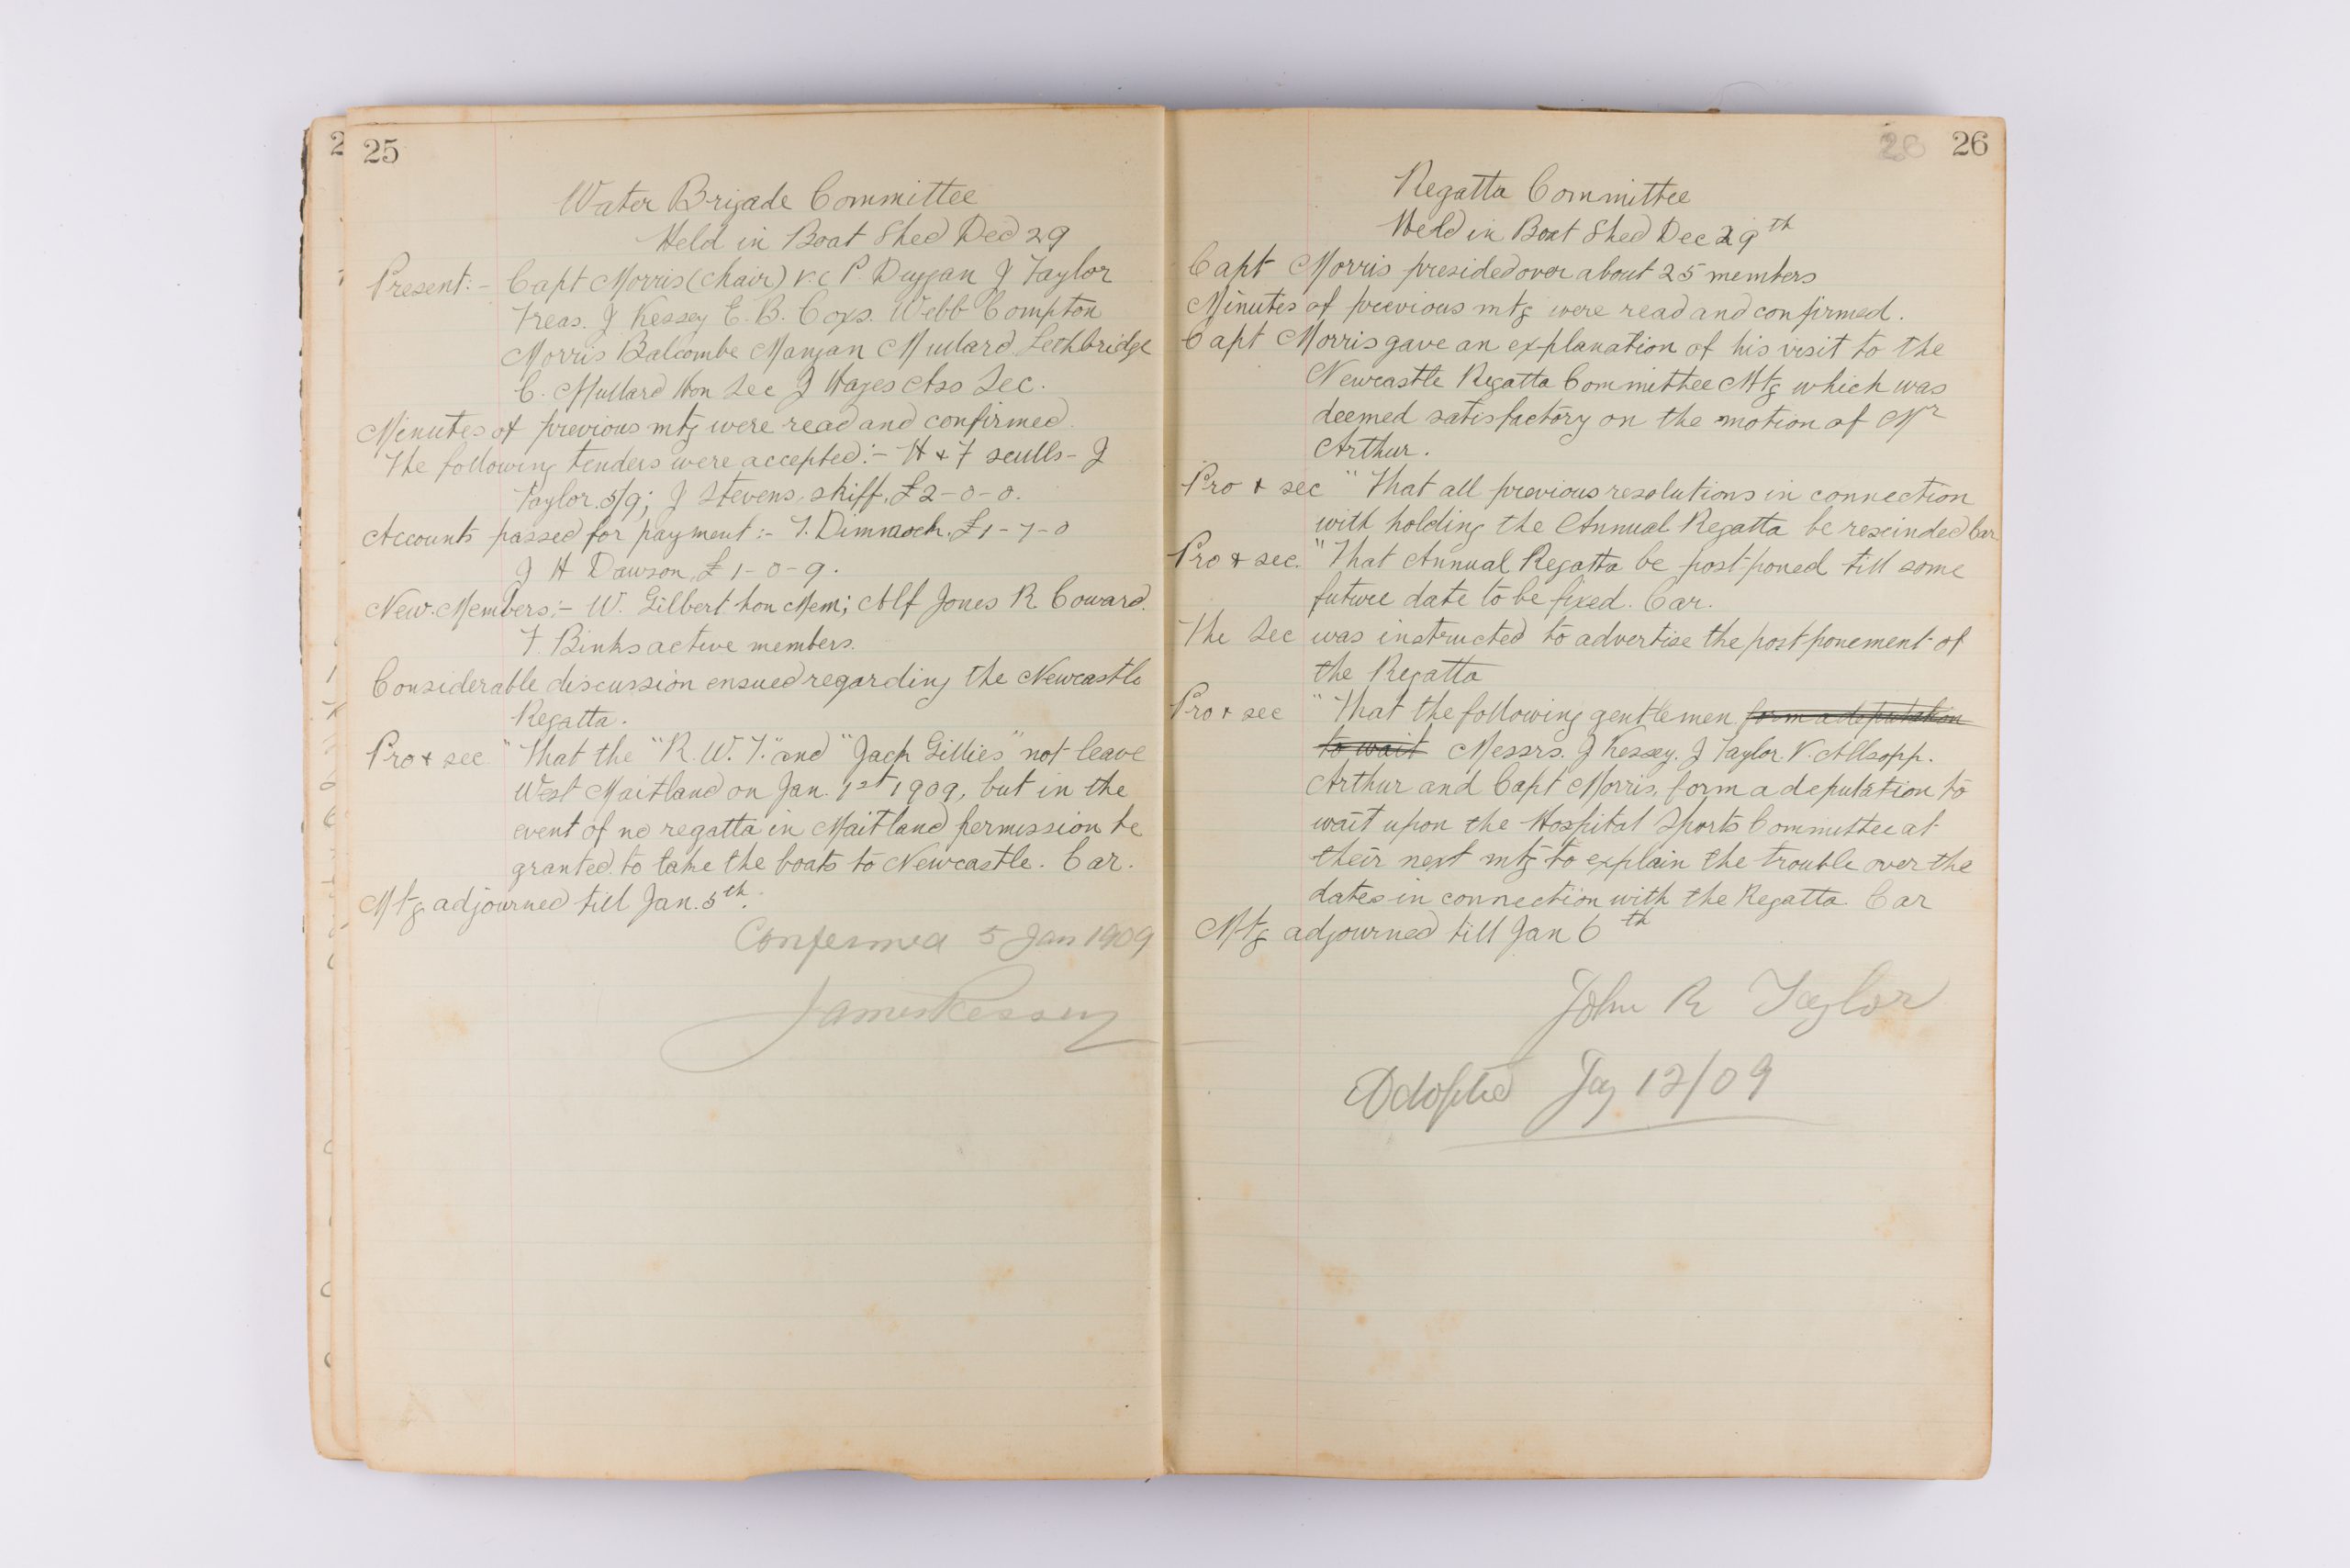 25
Water Brigade Committee
Held in Boat Shed Dec 29
Present:- Capt Morris (chair) V.C P. Duggan J Taylor
Treas. J Kessey E. B. Cops. Webb Compton
Morris Balcombe Mangan Mullard Lethbridge
C. Mullard Hon Sec J Hayes Ass Sec.
Minutes of previous mtg were read and confirmed.
The following tenders were accepted:- H & F sculls - J
Taylor 5/9; J Stevens, skiff, £2-0-0.
Accounts passed for payment:- T. Dimmock. £1-7-0
J H Dawson, £1-0-9.
New Members:- W. Gilbert hon Mem; Alf Jones R Coward.
F. Binks active members.
Considerable discussion ensued regarding the Newcastle
Regatta.
Pro & sec "That the "R. W. T." and "Jack Gillies" not leave
West Maitland on Jan. 1st 1909, but in the
event of no regatta in Maitland permission be
granted to take the boats to Newcastle. Car.
Mtg adjourned till Jan. 5th.
Confirmed 5 Jan 1909
James Kessey
26 26
Regatta Committee
Held in Boat Shed Dec 29th
Capt Morris presided over about 25 members
Minutes of previous mtg were read and confirmed.
Capt Morris gave an explanation of his visit to the
Newcastle Regatta Committee Mtg which was
deemed satisfactory on the motion of Mr
Arthur.
Pro & sec "That all previous resolutions in connection
with holding the Annual Regatta be rescinded Car.
Pro & sec. "That Annual Regatta be postponed till some
future date to be fixed. Car.
The Sec was instructed to advertise the postponement of
the Regatta
Pro & sec "That the following gentlemen form a deputation
to wait Messrs. J Kessey. J Taylor. V. Allsopp.
Arthur and Capt Morris, form a deputation to
wait upon the Hospital Sports Committee at
their next mtg to explain the trouble over the
dates in connection with the Regatta. Car
Mtg adjourned till Jan 6th
John R Taylor
Adopted Jay 12/09